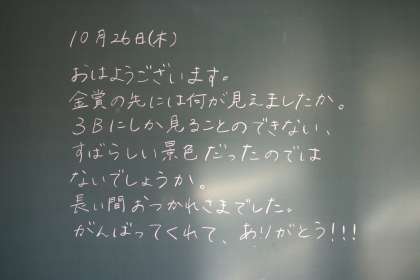 10月26日(木)
おはようございます。
金賞の先には何が見えましたか。
3Bにしか見ることのできない、
すばらしい景色だったのでは
ないでしょうか。
長い間おつかれさまでした。
がんばってくれて、ありがとう!!!